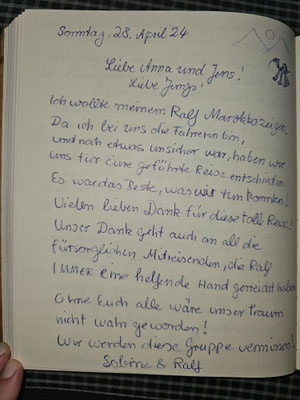 Sonntag, 28. April 24
Liebe Anna und Jens!
Liebe Jungs!
Ich wollte meinem Ralf Marokko zeigen.
Da ich bei uns die Fahrerin bin,
und noch etwas unsicher war, haben wir
uns für eure geführte Reise entschieden.
Es war das Beste, was wir tun konnten!
Vielen lieben Dank für diese tolle Reise!
Unser Dank geht auch an all die
fürsorglichen Mitreisenden, die Ralf
IMMER eine helfende Hand gereicht haben.
Ohne Euch alle wäre unser Traum
nicht wahr geworden!
Wir werden diese Gruppe vermissen!
Sabine & Ralf